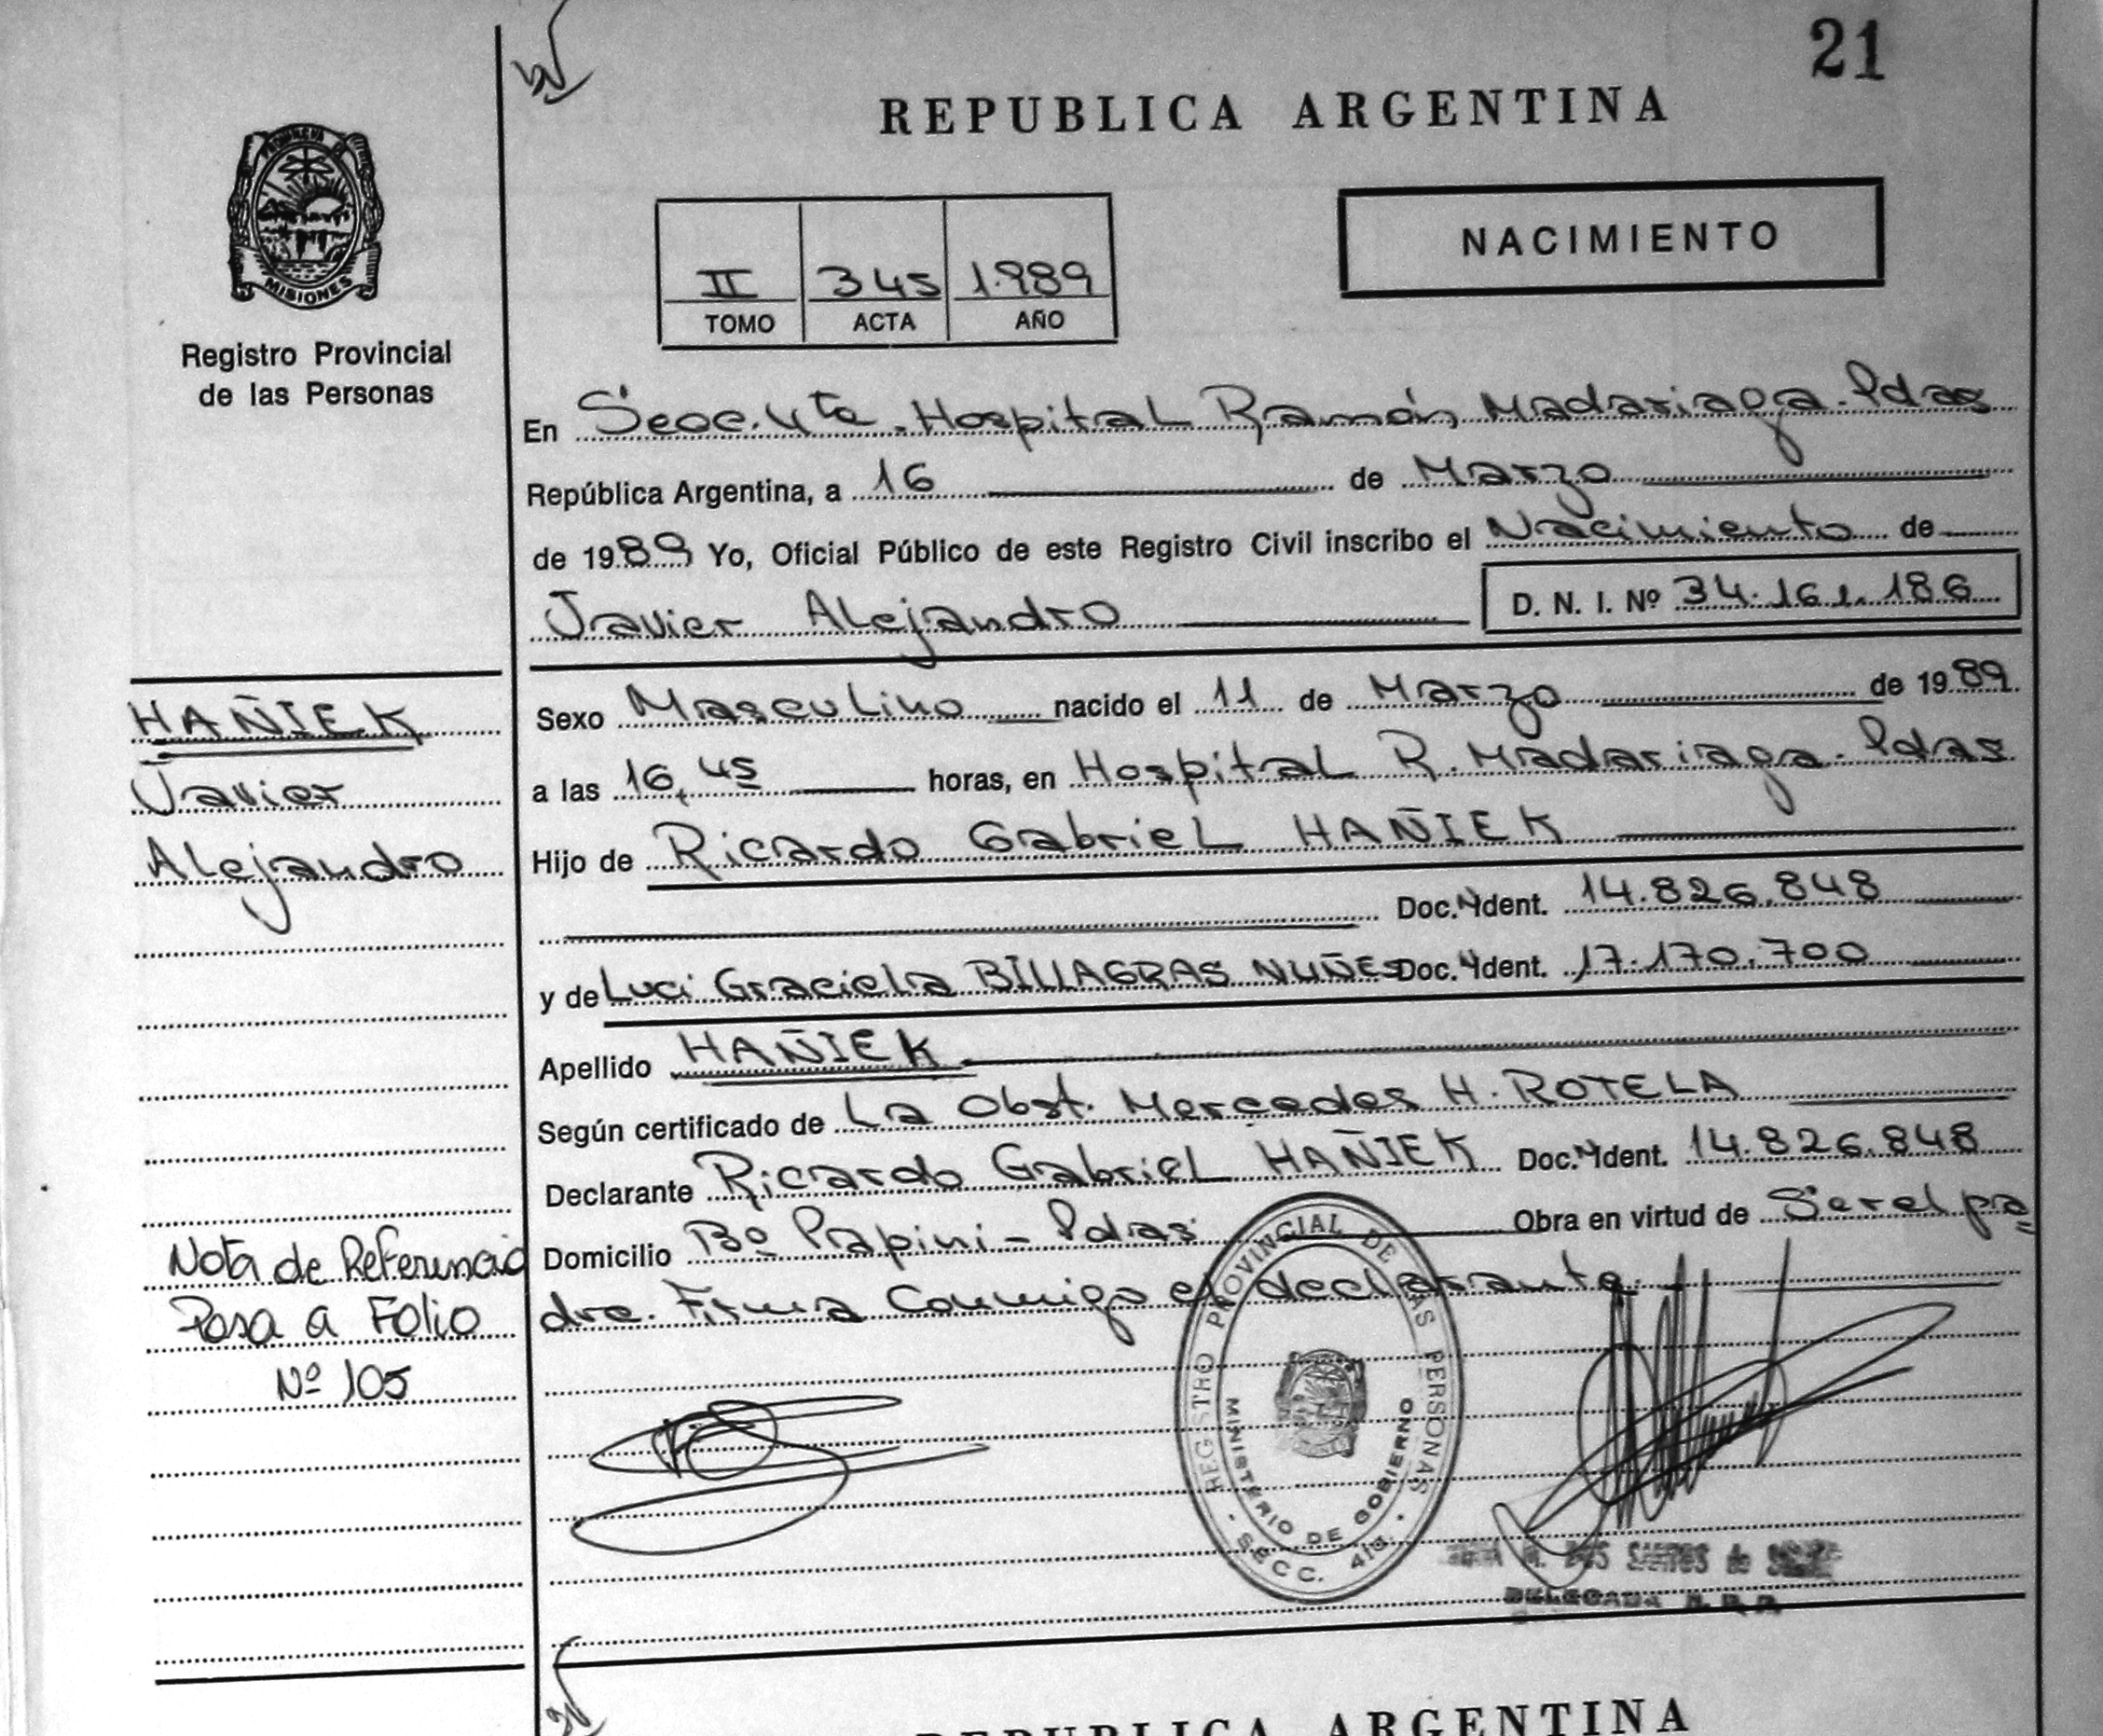 21
REPUBLICA ARGENTINA
PROVINCIA DE
MISIONES
Registro Provincial
de las Personas
II 345 1.989
TOMO ACTA AÑO
NACIMIENTO
En Secc. 4ta. Hospital Ramón Madariaga. Pdas
República Argentina, a 16 de Marzo
de 1989 Yo, Oficial Público de este Registro Civil inscribo el Nacimiento de
Javier Alejandro D. N. I. Nº 34.161.186
HAÑIEK
Javier
Alejandro
Sexo Masculino nacido el 11 de Marzo de 1989
a las 16,45 horas, en Hospital R. Madariaga. Pdas
Hijo de Ricardo Gabriel HAÑIEK
Doc. Ident. 14.826.848
y de Luci Graciela BILLAGRAS NUÑES Doc. Ident. 17.170.700
Apellido HAÑIEK
Según certificado de La Obst. Mercedes H. ROTELA
Declarante Ricardo Gabriel HAÑIEK Doc. Ident. 14.826.848
Domicilio Bº Papini - Pdas Obra en virtud de Ser el pa=
dre. Firma Conmigo el declarante.
Nota de Referencia
Pasa a Folio
Nº 105
REGISTRO PROVINCIAL DE LAS PERSONAS
MINISTERIO DE GOBIERNO
SECC. 4ta.
DOS SANTOS de
DELEGADA R. P. P.
REPUBLICA ARGENTINA